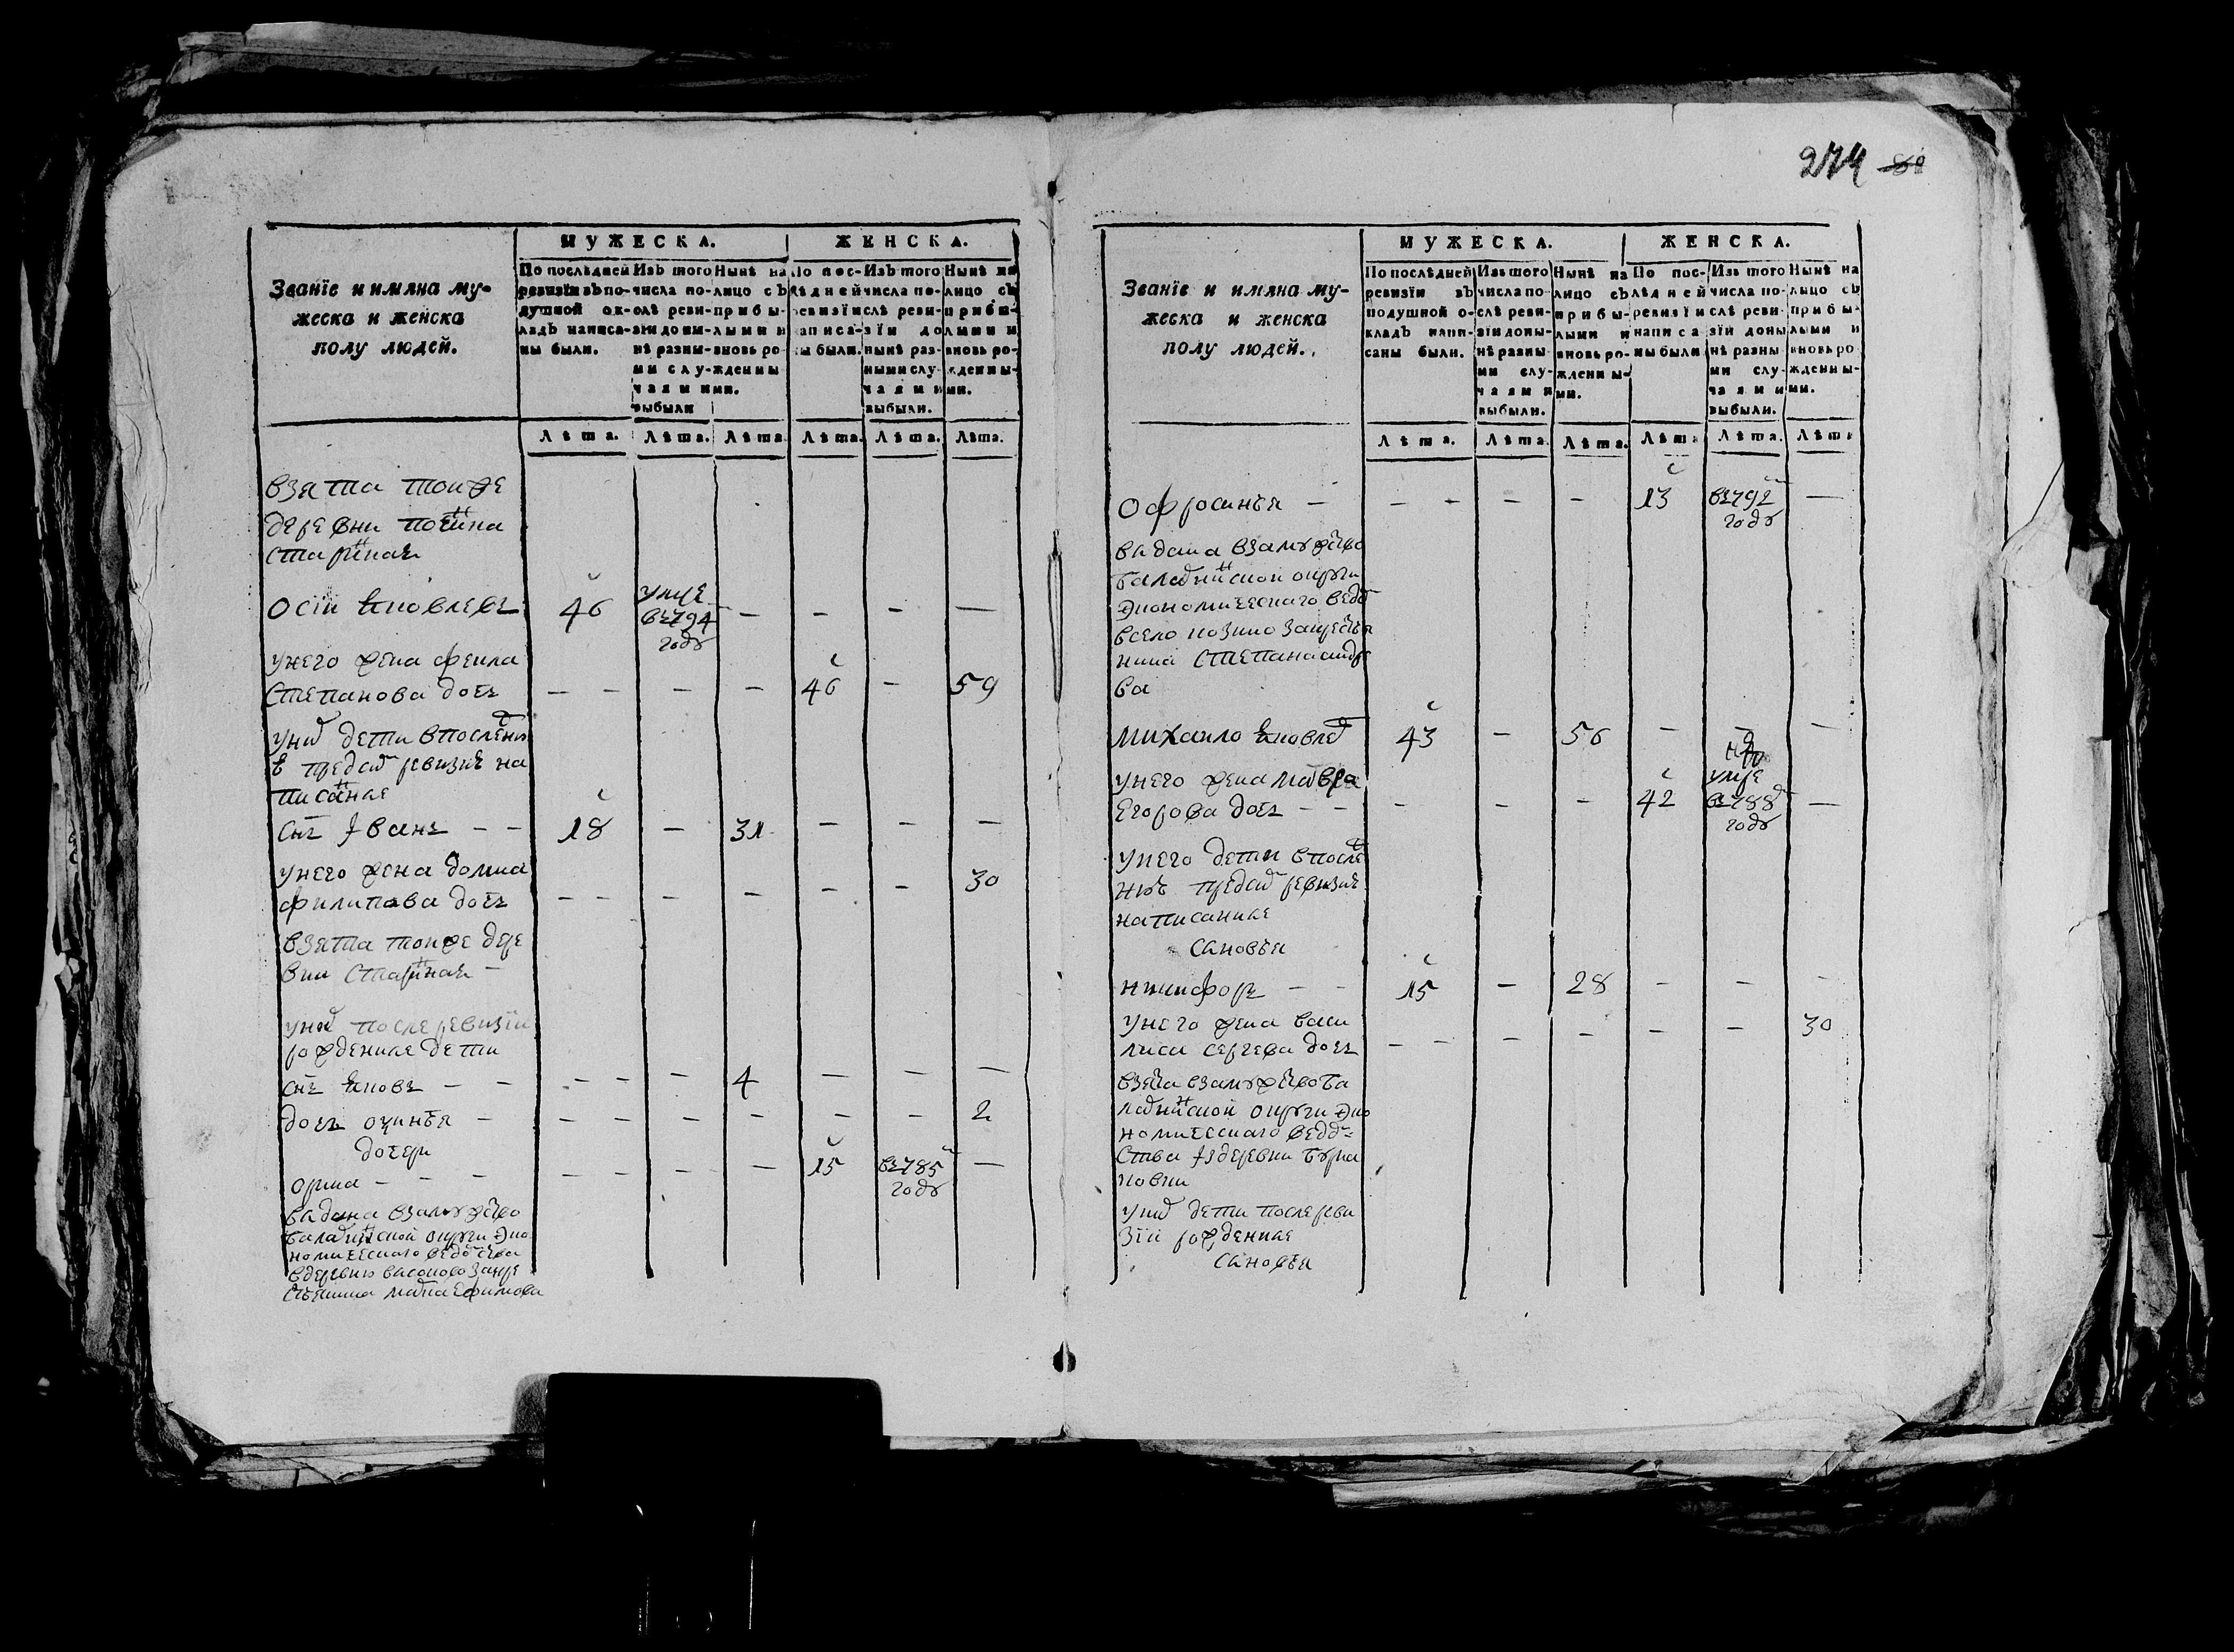 274 81
МУЖЕСКА. ЖЕНСКА.
Званїе и имяна му-
жеска и женска
полу людей.
По послѣдней
ревизїи въ по-
душной ок-
ладъ написа-
ны были.
Изъ того
числа по-
слѣ реви-
зїи доны-
нѣ разны-
ми слу-
чаями
выбыли
Нынѣ на
лицо съ
прибы-
лыми и
вновь ро-
жденны-
ми.
По пос-
лѣдней
ревизїи
написа-
ны были.
Изъ того
числа по-
слѣ реви-
зїи до
нынѣ раз-
ными слу-
чаями
выбыли.
Нынѣ на
лицо съ
прибы-
лыми и
вновь ро-
жденны-
ми.
Лѣта. Лѣта. Лѣта. Лѣта. Лѣта. Лѣта.
взята тоиже
деревни
старинная
осип яковлевъ 46 умре
въ 794
году — — — —
унего жена фекла
степанова дочь — — — — 46 — 59
уних дети впоследней
пред сим ревизие на
писаные
снъ иванъ — — 18 — 31 — — —
унего жена домна
филипава дочь — — — — — — 30
взята тоиже дере
вни старинная —
уних после ревизїи
рожденные дети
снъ яковъ — — — — — 4 — — —
дочь — — — — — — — 2
дочери
орина — — — — — — — 15 въ 785
году —
выдана взамужство
балахнинской округи эко
номического ведомства
вдеревню высоково за кре
стьянина Ефимова
МУЖЕСКА. ЖЕНСКА.
Званїе и имяна му-
жеска и женска
полу людей.
По послѣдней
ревизїи въ
подушной о-
кладъ напи-
саны были.
Изъ того
числа по-
слѣ реви-
зїи доны-
нѣ разны-
ми слу-
чаями
выбыли.
Нынѣ на
лицо съ
прибы-
лыми и
вновь ро-
жденны-
ми.
По пос-
лѣдней
ревизїи
написа-
ны были
Изъ того
числа по-
слѣ реви-
зїи доны
нѣ разны-
ми слу-
чаями
выбыли.
Нынѣ на
лицо съ
прибы-
лыми и
вновь ро
жденны-
ми.
Лѣта. Лѣта. Лѣта. Лѣта Лѣта. Лѣта
Офросинья — — — — — 13 въ 792
году —
выдана взамужство
балахнинской округи
экономического ведом
всело козино за крестья
нина степана андре
ва
михаило яковлев 43 — 56 — — —
унего жена мавра
Егорова дочь — — — — — 42 умре
въ 788
году —
унего дети в после
нюю пред сим ревизие
написаные
сыновья
никифоръ — — 15 — 28 — — —
унего жена васи
лиса сергева дочь — — — — — — 30
взята взамужство ба
лахнинской округи эко
номического ведом=
ства из деревни бурна
ковки
уних дети после реви
зїи рожденные
сыновья